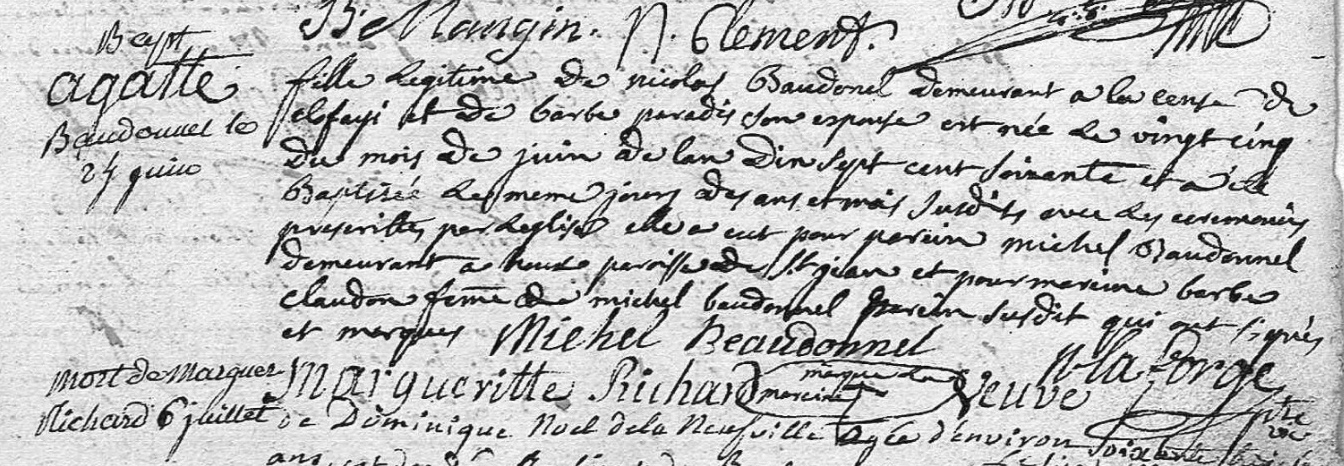 Be Mangin. N. Clement.
Bapt
agatte
Baudonnel le
25 juin
fille Legitime de nicolas Baudonel demeurant a la cense de
clofayi et de barbe paradis son espouse est née le vingt cinq
du mois de juin de lan Dix sept cent soixante et a été
Baptisée le meme jours des ans et mois susdits avec les ceremonies
prescrittes par Leglise elle a eut pour parein michel Baudonnel
demeurant a paroisse de St jean et pour mareine barbe
claudon feme de michel baudonnel parein susdit qui ont signés
et marqués Michel Beaudonnel N la Forge
marque de la
mareine
ptre
vic
Mort de Marguer
Richard 6 juillet
Margueritte Richard Veuve
de Dominique Noel de la Neufville agée d'environ soixante
ans